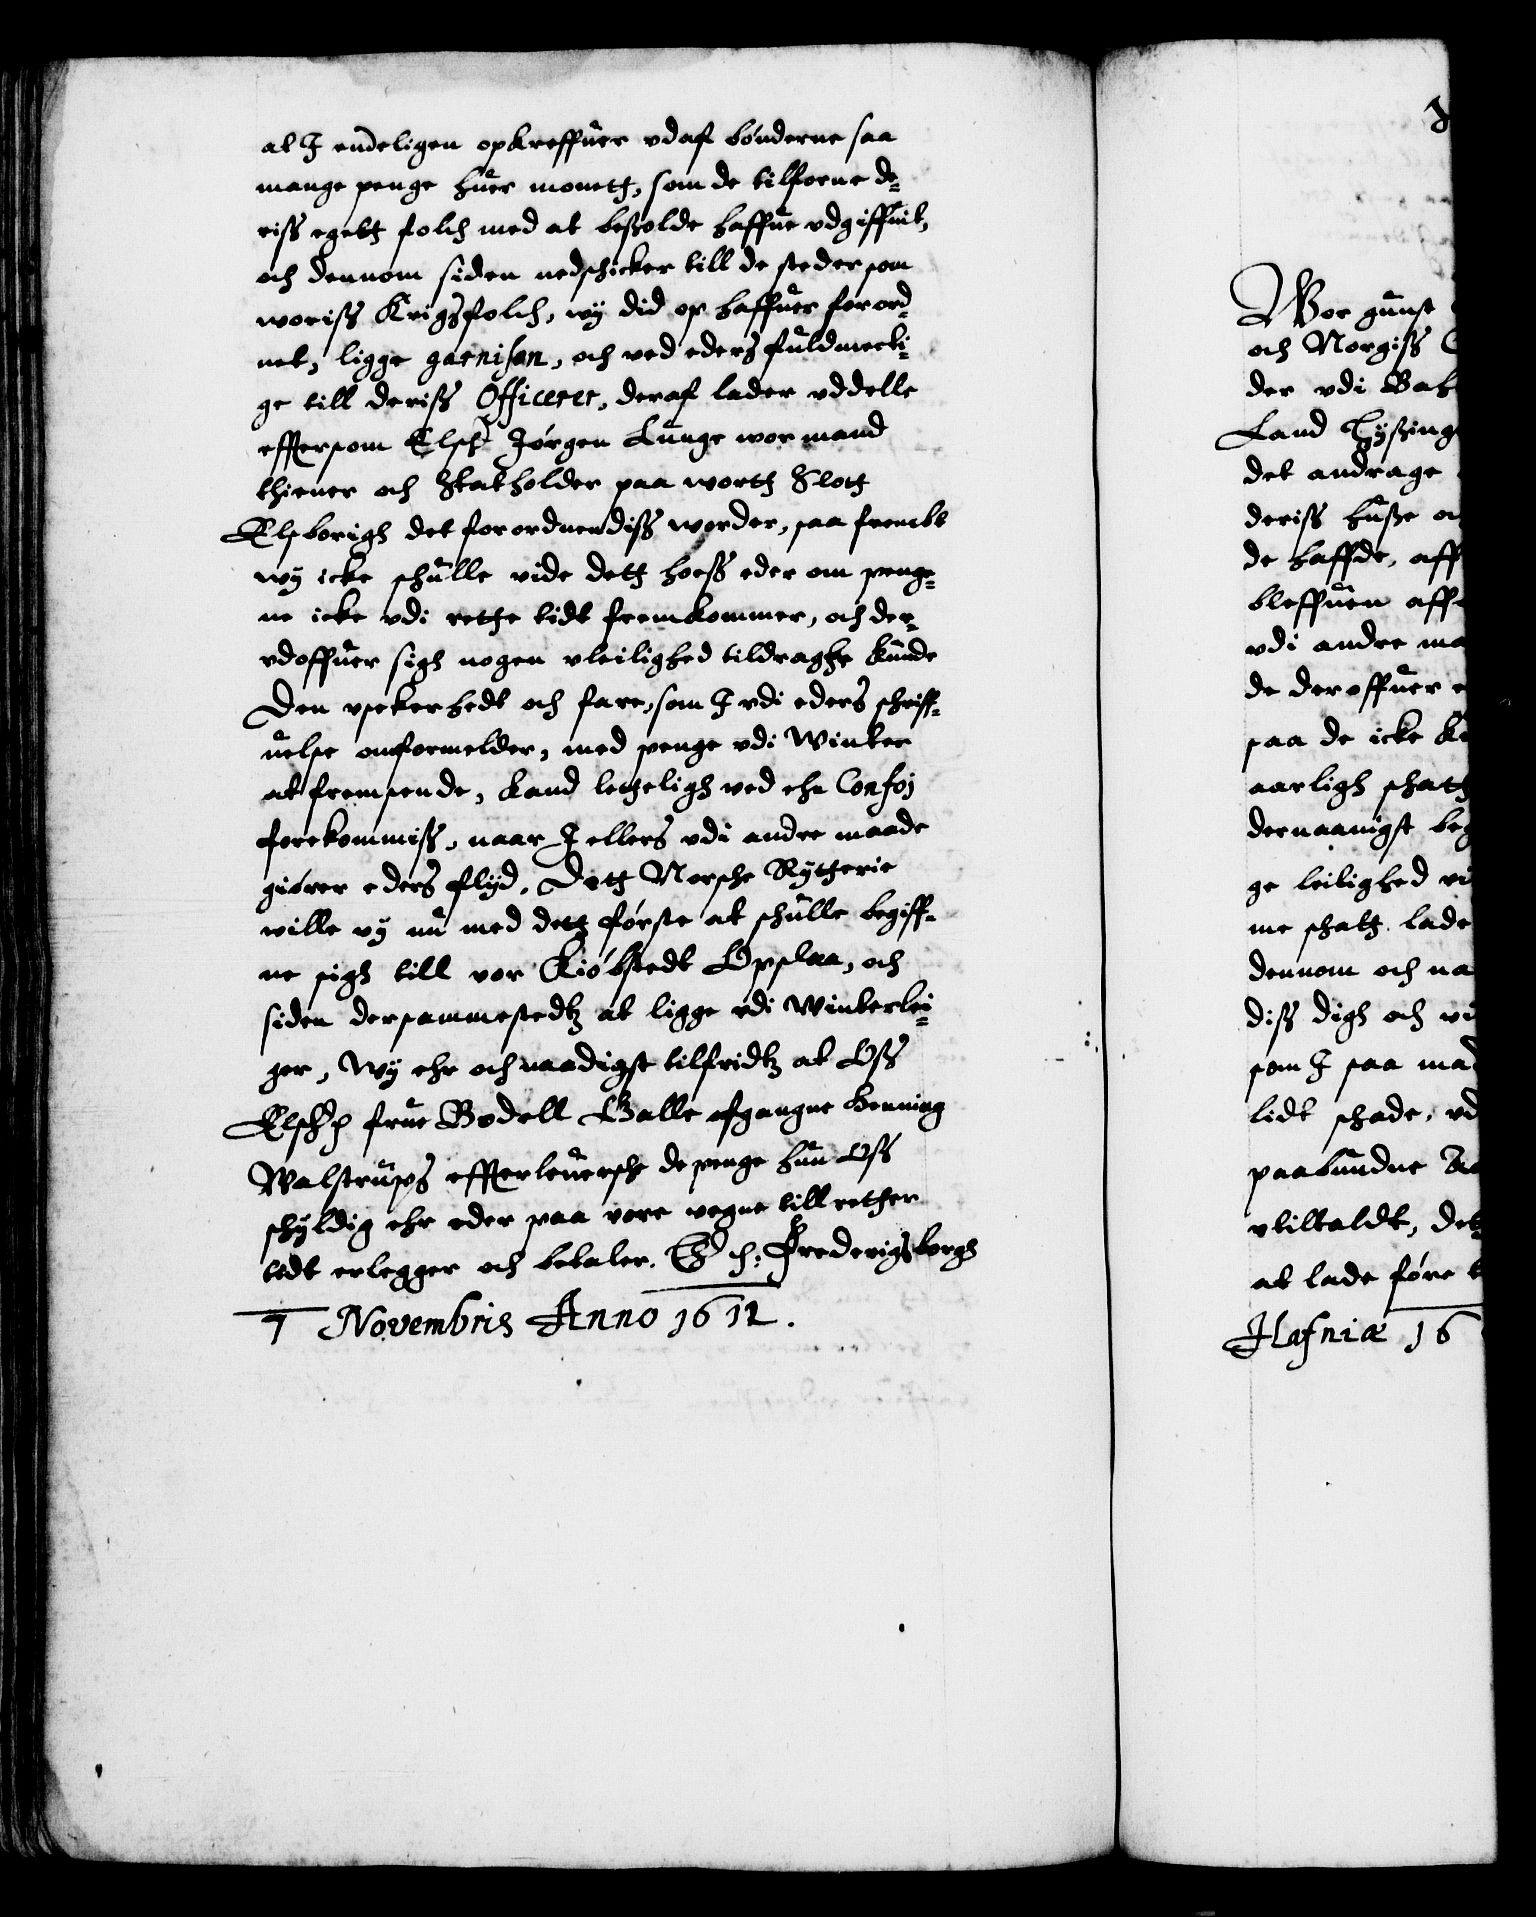 at I endeligen opkreffuer udaf bønderne saa
mange penge huer monett, som de tilforne de=
riss egett folch med at besolde haffue udgiffuit,
och dennom siden nedschicker till de steder som
woriss Krigsfolch, wy did op haffuer forord=
net, ligge garnison, och ved eders fuldmecti=
ge till deriss Officerer, deraf lader uddelle
efftersom Elsch Jørgen Lunge wor mand
thiener och Stathollder paa wortt Slott
Elsborigh det forordnendiss worder, saa frembt
wy icke schulle vide dett hoess eder om penge=
ne icke udi rette tidt fremkommer, och der=
udoffuer sigh nogen uleilighed tildraghe kunde
Den usekerhedt och fare, som I udi eders schriff=
uelse omformelder, med penge udi Winter
at fremsende, kand letteligh ved ehn Confoj
forekommiss, naar I ellers udi andre maade
giører eders flijd, Dett Norsche Rytterie
wille wy nu med dett første at schulle begiff=
ue sigh till vor Kiøbstedt Opslaa, och
siden dersammestedtz at ligge udi Winterlei=
ger, Wy ehr och naadigst tilfridtz at Oss
Elsch: frue Bodell Balle afgangne Henning
Walstrups effterleuersche de penge hun Oss
schyldig ehr eder paa vore vegne till retter
tidt erlegger och betaler. Frederigsborgh
7 Novembris Anno 1612.
Wor gunst
och Norgiss
der udi Bah
Land Hyssing
det andrage
deriss husse oc
de haffde, aff
bleffuen aff
udi andre ma
de deroffuer e
saa de icke K
aarligh schatt
dernaadigst beg
ge leilighed vi
me schatt lade
dennom och na
diss digh och vi
som I saa mad
lidt schade, ud
paabundne
utiltaldt, det
at lade føre t
Hafniæ 16